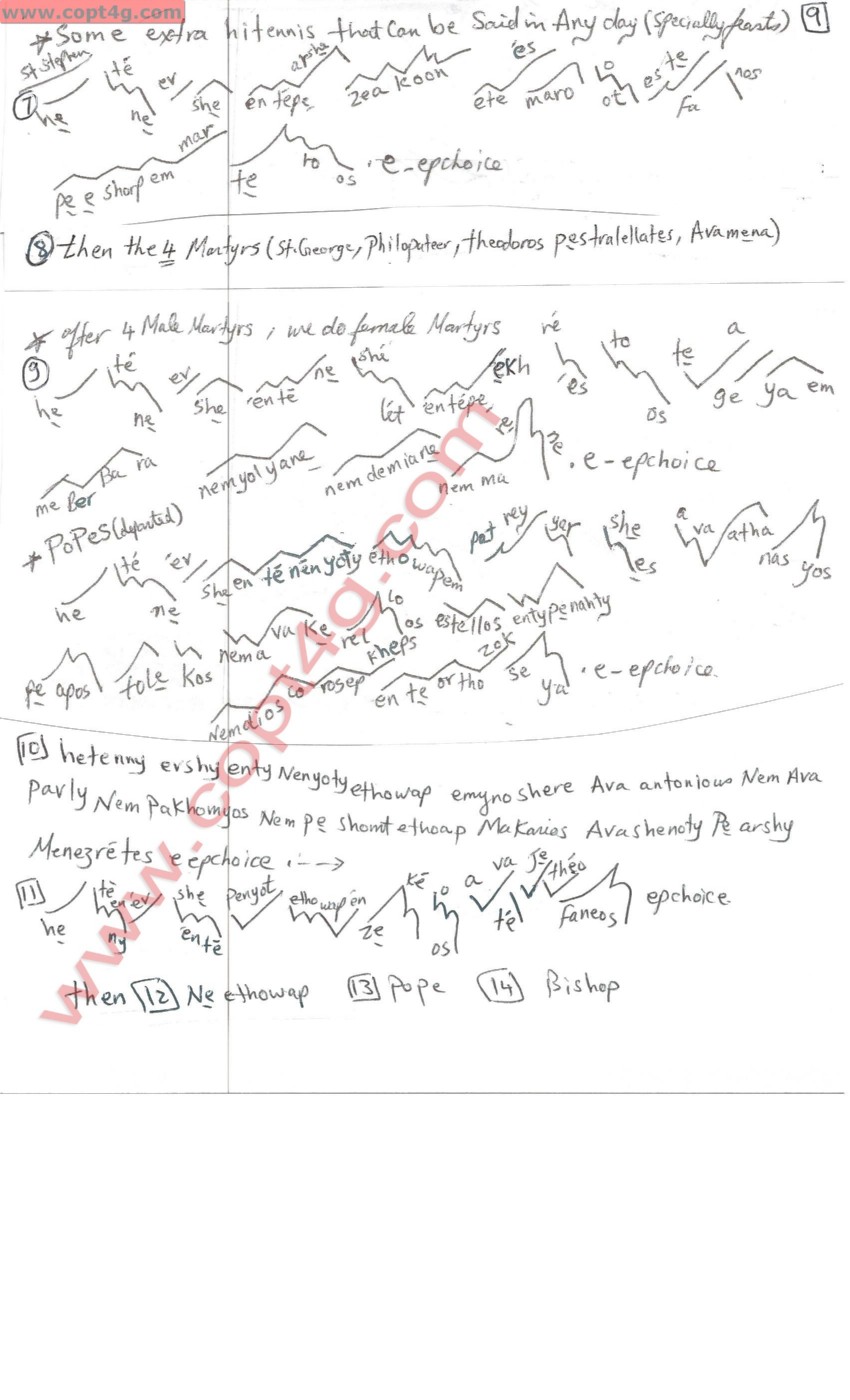 www.copt4g.com
* Some extra hitennis that can be Said in Any day (Specially feasts) 9
St Stephen
7 he té ne ev she en tépe arshe zea koon éte maro és ot o es te fa nos
pe e shorp em mar te ro os . e-epchoice
8 then the 4 Martyrs (St.George, Philopateer, theodoros pestralellates, Avamena)
* after 4 Male Martyrs, we do female Martyrs
9 he té ne ev she en té ne shé lét en tépe ékh ré és to os te a ge ya em
me Ber Ba ra nem yol yane nem demiane nem ma re ne . e-epchoice
* PoPes (departed)
he té ne év she en té nén yoty éthowapem pat rey yar she es a va atha nas yos
pe apos tole kos nem a va Ke rel lo os estellos entypenahty
Nem dios co rosep kheps en te ortho zok se ya . e-epchoice.
10 hetenny ershy enty Nenyoty ethowap emyno shere Ava antonious Nem Ava
Pavly Nem Pakhomyos Nem pe shomt ethoap Makaries Avashenoty Pe arshy
Menezrétes e epchoice . -->
11 he té ny en ev she en té Penyot ethowap én ze ké o os a va té Je théo faneos epchoice
then 12 Ne ethowap 13 Pope 14 Bishop
www.copt4g.com